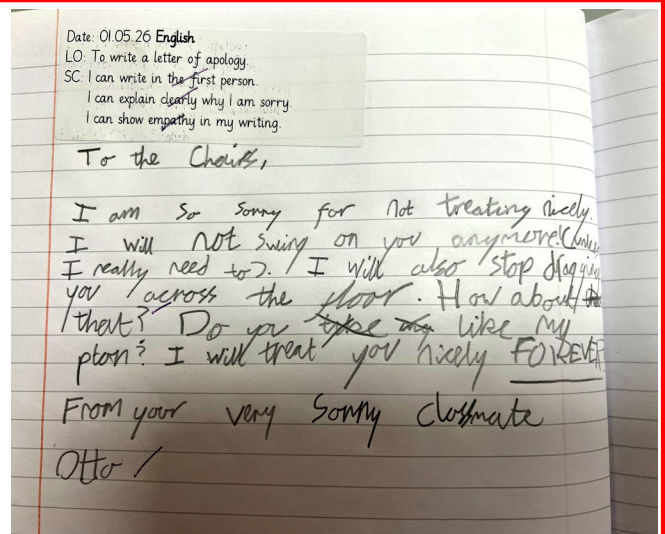 Date: 01.05.26 English
LO: To write a letter of apology.
SC: I can write in the first person.
I can explain clearly why I am sorry.
I can show empathy in my writing.
To the Chairs,
I am so sorry for not treating nicely.
I will not swing on you anymore! (unless
I really need to). I will also stop dragging
you across the floor. How about
that? Do you like my
plan? I will treat you nicely FOIREVER
From your very sorry classmate
Otto